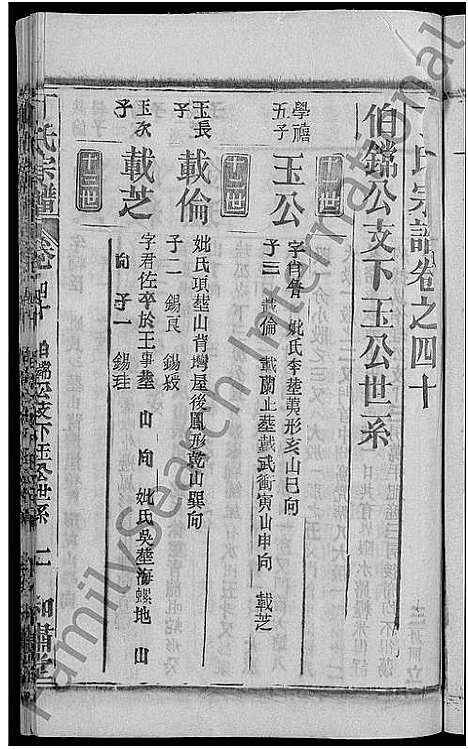 丁氏宗譜卷之四十
伯鏛公支下玉公世系
十一世
學禧
五子
玉公
字自脩 妣氏李塟黃形亥山巳向
子三 載倫 載蘭上塟戴武衝寅山申向 載芝
十二世
玉長
子
載倫
妣氏項塟山背灣屋後鳳形乾山巽向
子二 錫良 錫綬
十二世
玉次
子
載芝
字君佐卒於王事塟 山 向 妣氏吳塟海螺地 山
向 子一 錫珪
丁氏宗譜 卷之四十 伯鏛公支下玉公世系 一
FamilySearch International